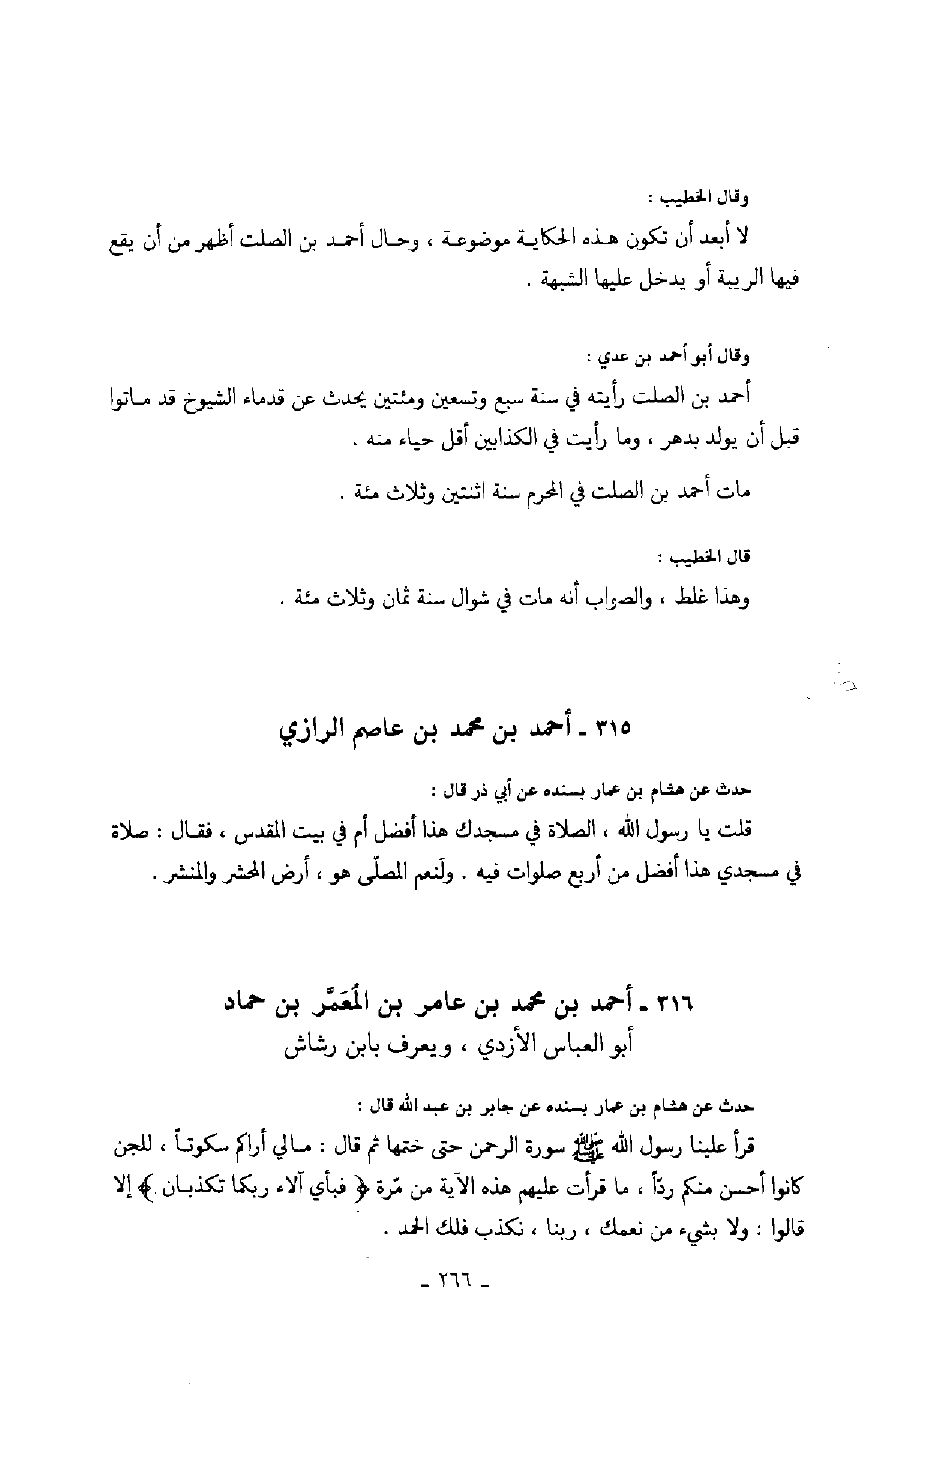 وقال الخطيب :
لا أبعد أن تكون هذه الحكاية موضوعة ، وحال أحمد بن الصلت أظهر من أن يقع
فيها الريبة أو يدخل عليها الشبهة .
وقال أبو أحمد بن عدي :
أحمد بن الصلت رأيته في سنة سبع وتسعين ومئتين يحدث عن قدماء الشيوخ قد ماتوا
قبل أن يولد بدهر ، وما رأيت في الكذابين أقل حياء منه .
مات أحمد بن الصلت في المحرم سنة اثنتين وثلاث مئة .
قال الخطيب :
وهذا غلط ، والصواب أنه مات في شوال سنة ثمان وثلاث مئة .
٣١٥ ـ أحمد بن محمد بن عاصم الرازي
حدث عن هشام بن عمار بسنده عن أبي ذر قال :
قلت يا رسول الله ، الصلاة في مسجدك هذا أفضل أم في بيت المقدس ، فقال : صلاة
في مسجدي هذا أفضل من أربع صلوات فيه . ولَنعم المصلّى هو ، أرض المحشر والمنشر .
٣١٦ ـ أحمد بن محمد بن عامر بن المُعَمَّر بن حماد
أبو العباس الأزدي ، ويعرف بابن رشاش
حدث عن هشام بن عمار بسنده عن جابر بن عبد الله قال :
قرأ علينا رسول الله ﷺ سورة الرحمن حتى ختمها ثم قال : مالي أراكم سكوتاً ، للجن
كانوا أحسن منكم ردّاً ، ما قرأت عليهم هذه الآية من مَرّة ﴿ فبأي آلاء ربكما تكذبان ﴾ إلا
قالوا : ولا بشيء من نعمك ، ربنا ، نكذب فلك الحمد .
ـ ٢٦٦ ـ